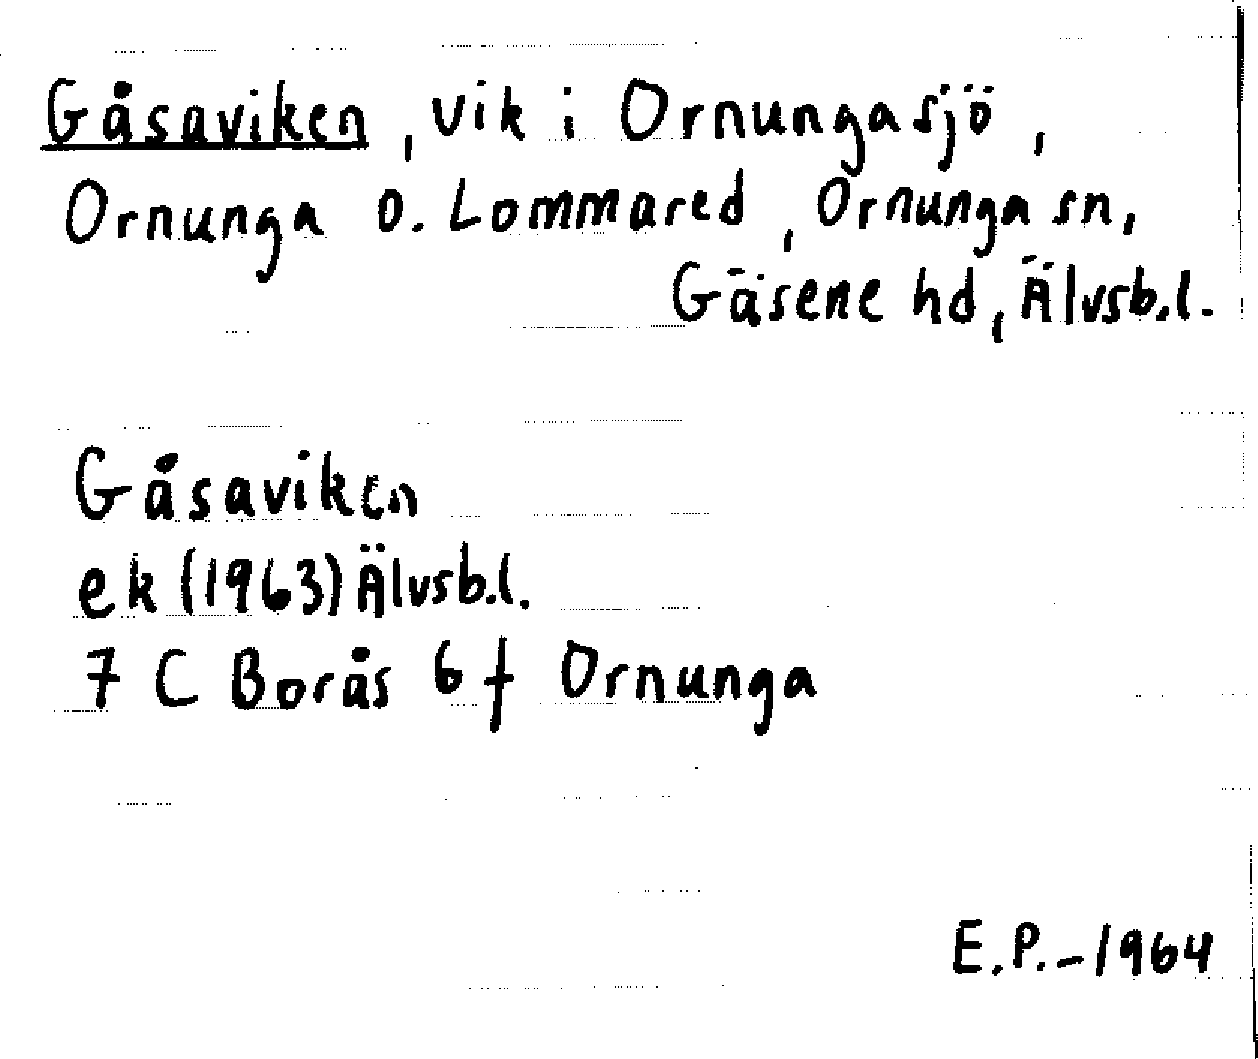 Gåsaviken, vik i Ornungasjö,
Ornunga o. Lommared, Ornunga sn,
Gäsene hd, Älvsb.l.
Gåsaviken
ek (1963) Älvsb.l.
7 C Borås 6 f Ornunga
E.P.-1964